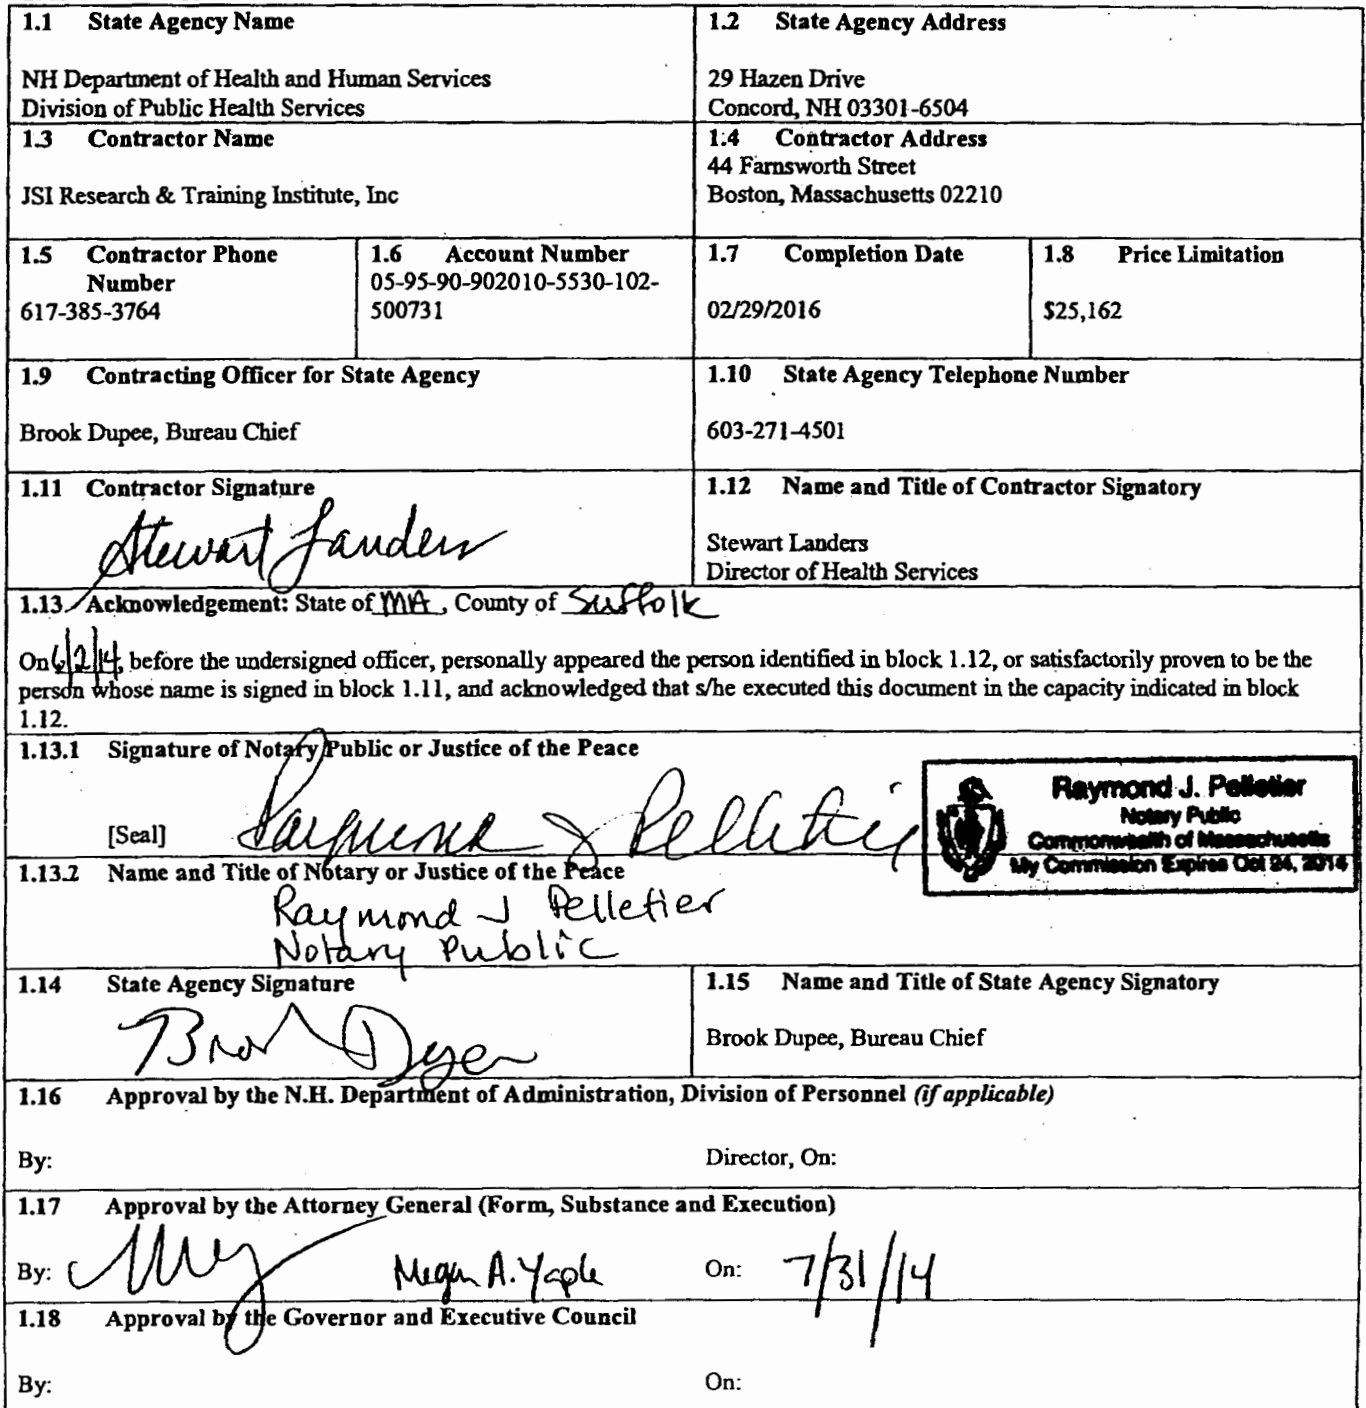 1.1 State Agency Name
NH Department of Health and Human Services
Division of Public Health Services
1.2 State Agency Address
29 Hazen Drive
Concord, NH 03301-6504
1.3 Contractor Name
JSI Research & Training Institute, Inc
1.4 Contractor Address
44 Farnsworth Street
Boston, Massachusetts 02210
1.5 Contractor Phone
Number
617-385-3764
1.6 Account Number
05-95-90-902010-5530-102-
500731
1.7 Completion Date
02/29/2016
1.8 Price Limitation
$25,162
1.9 Contracting Officer for State Agency
Brook Dupee, Bureau Chief
1.10 State Agency Telephone Number
603-271-4501
1.11 Contractor Signature
Stewart Landers
1.12 Name and Title of Contractor Signatory
Stewart Landers
Director of Health Services
1.13 Acknowledgement: State of MA, County of Suffolk
On 6/2/14, before the undersigned officer, personally appeared the person identified in block 1.12, or satisfactorily proven to be the
person whose name is signed in block 1.11, and acknowledged that s/he executed this document in the capacity indicated in block
1.12.
1.13.1 Signature of Notary Public or Justice of the Peace
[Seal] Raymond J Pelletier
Raymond J. Pelletier
Notary Public
Commonwealth of Massachusetts
My Commission Expires Oct 24, 2014
1.13.2 Name and Title of Notary or Justice of the Peace
Raymond J Pelletier
Notary Public
1.14 State Agency Signature
1.15 Name and Title of State Agency Signatory
Brook Dupee, Bureau Chief
1.16 Approval by the N.H. Department of Administration, Division of Personnel (if applicable)
By: Director, On:
1.17 Approval by the Attorney General (Form, Substance and Execution)
By: Megan A. Yaple On: 7/31/14
1.18 Approval by the Governor and Executive Council
By: On: